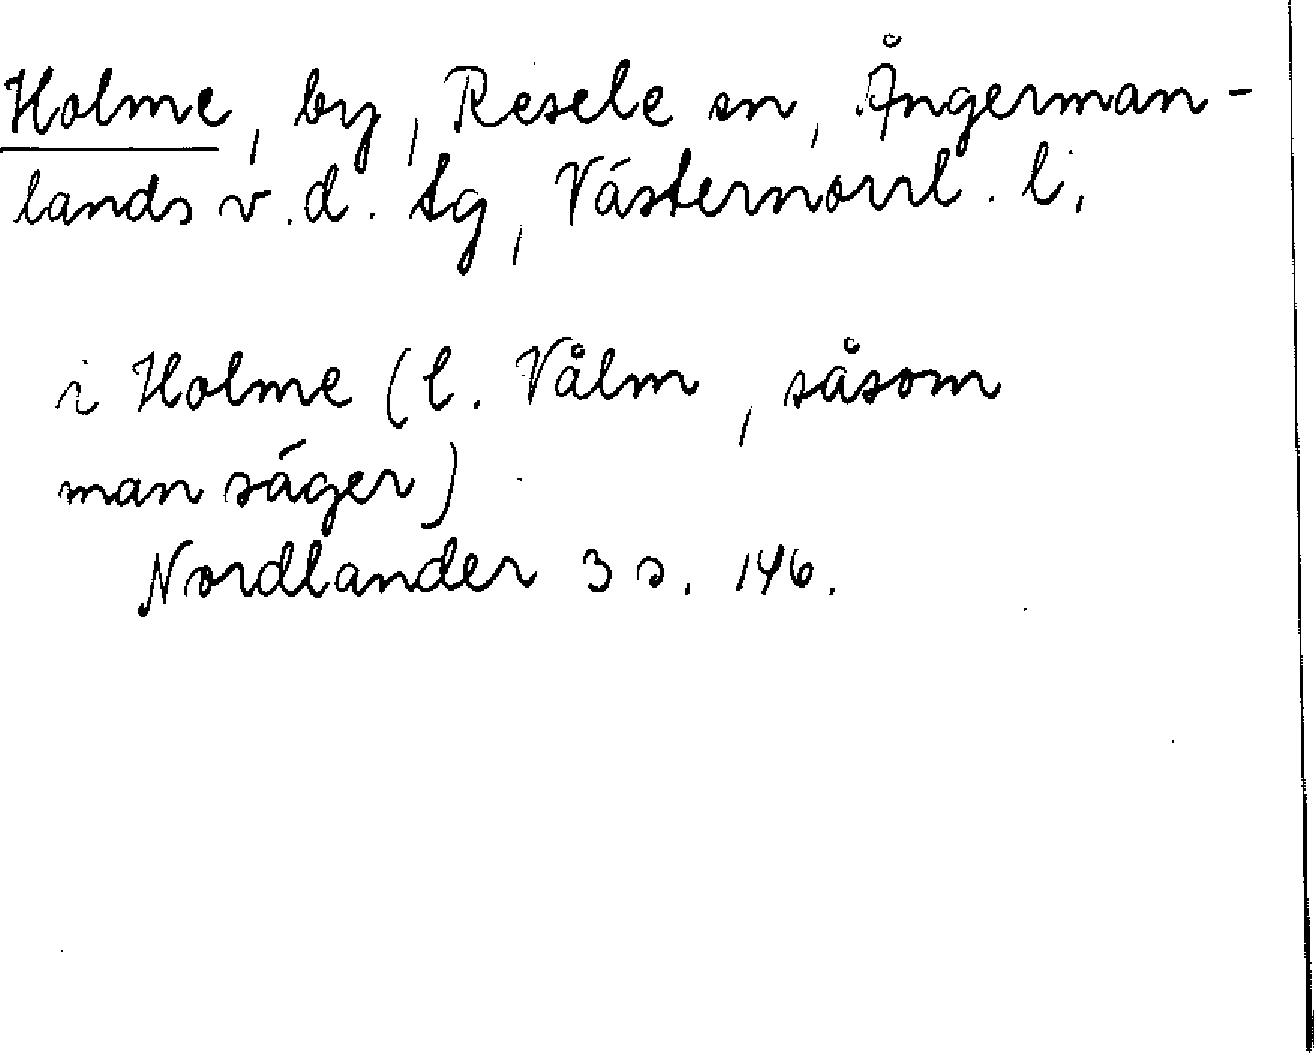 Holme, by, Resele sn, Ångerman-
lands v.d. tg, Västernorrl. l.
i Holme (l. Vålm, såsom
man säger)
Nordlander 3 s. 146.